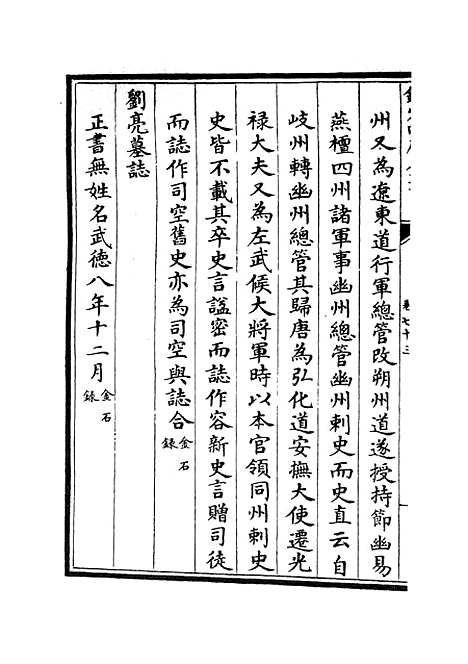 卷七十三
州又為遼東道行軍總管改朔州道遂授持節幽易
燕檀四州諸軍事幽州總管幽州刺史而史直云自
岐州轉幽州總管其歸唐為弘化道安撫大使遷光
祿大夫又為左武候大將軍時以本官領同州刺史
史皆不載其卒史言諡密而誌作容新史言贈司徒
而誌作司空舊史亦為司空與誌合金石錄
劉亮墓誌
正書無姓名武德八年十二月金石錄